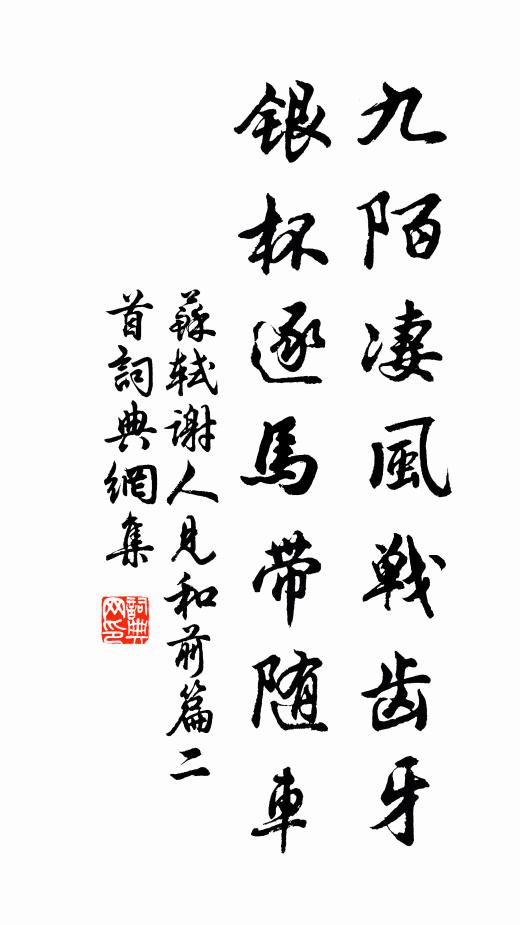 九陌凄風戰齿牙
銀杯逐馬帶随車
蘇軾谢人見和前篇二
首詞典網集
詞典
网印